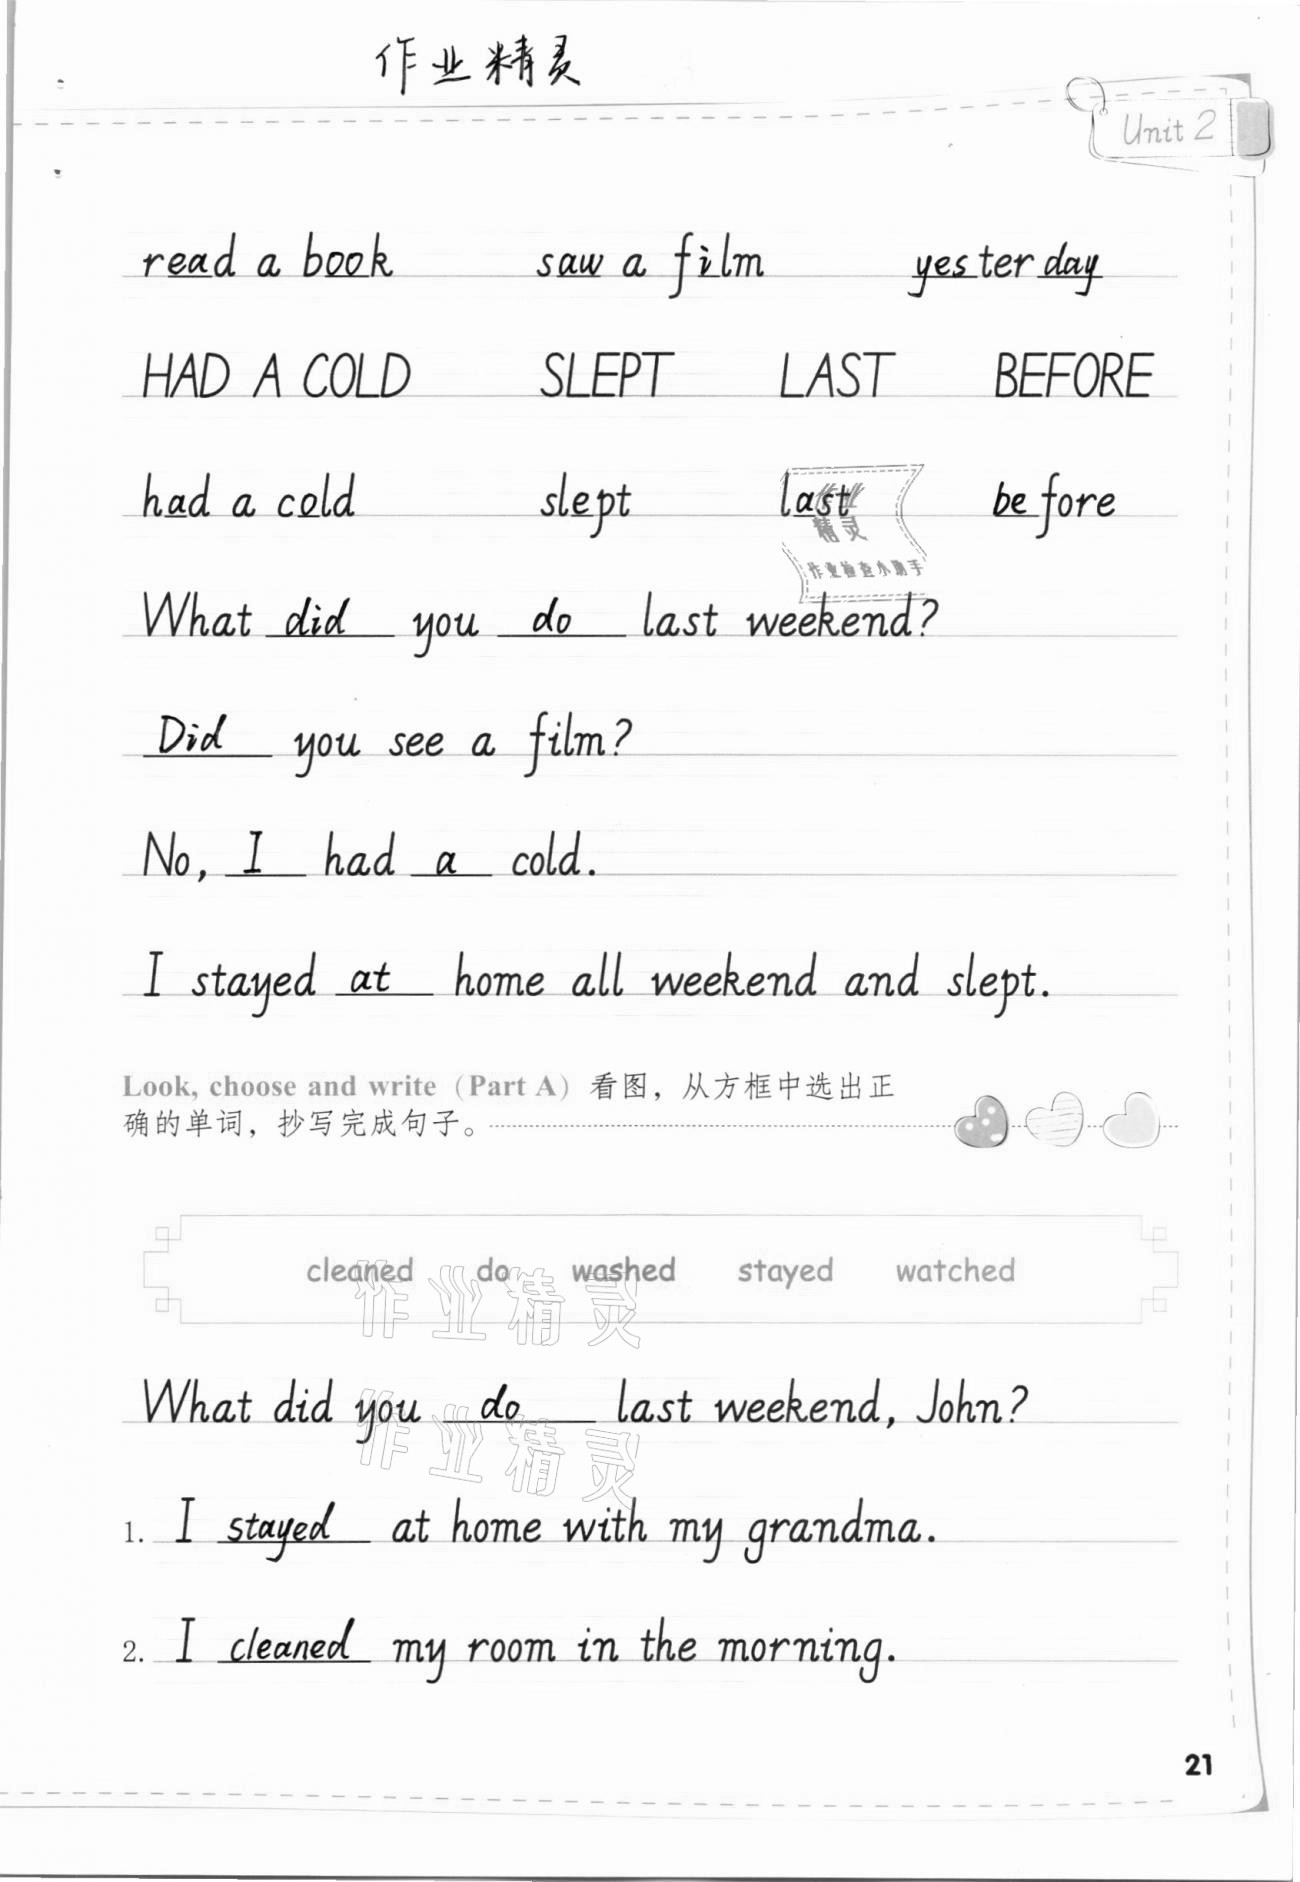 作业精灵
Unit 2
read a book saw a film yesterday
HAD A COLD SLEPT LAST BEFORE
had a cold slept last before
作业
精灵
作业检查小助手
What did you do last weekend?
Did you see a film?
No, I had a cold.
I stayed at home all weekend and slept.
Look, choose and write (Part A) 看图，从方框中选出正
确的单词，抄写完成句子。
cleaned do washed stayed watched
作业精灵
What did you do last weekend, John?
作业精灵
1. I stayed at home with my grandma.
2. I cleaned my room in the morning.
21